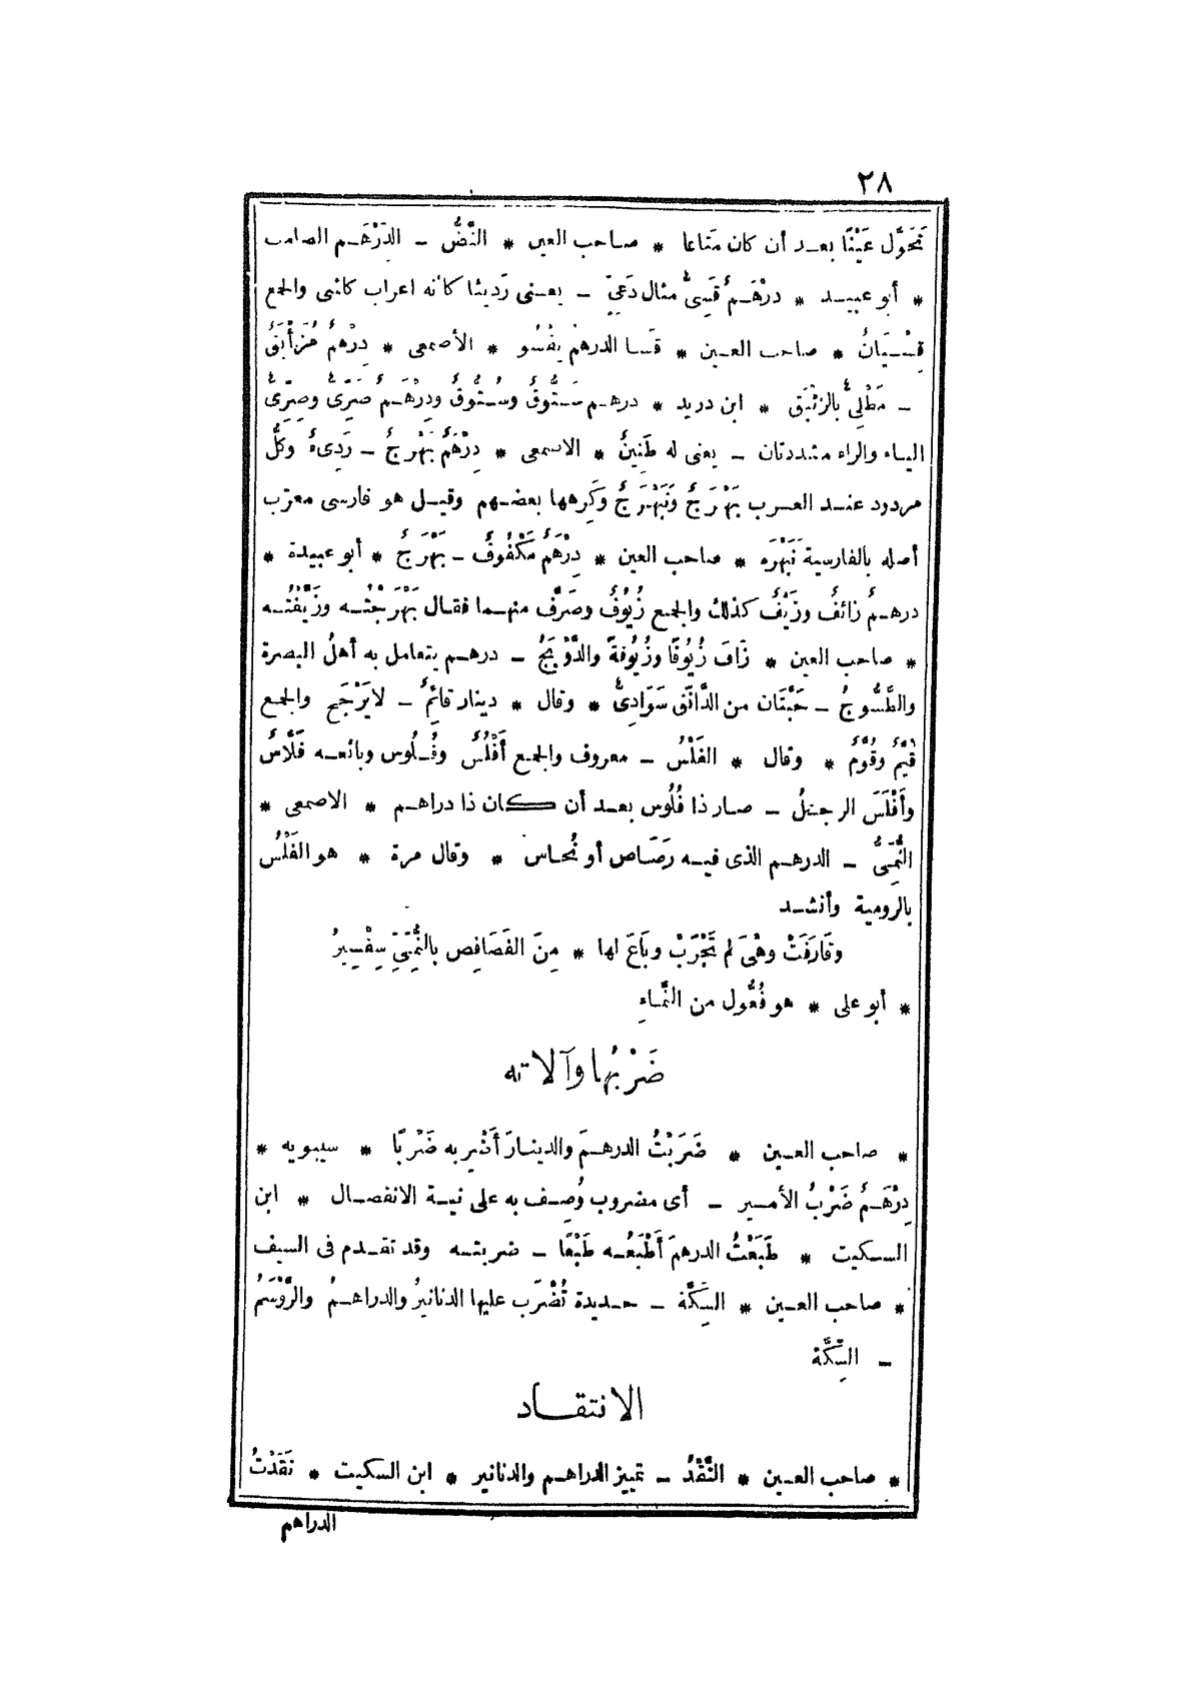 ٢٨
تَحَوَّل عَيْنًا بعد أن كان مَتاعا * صاحب العين * النَّضُّ ـ الدِّرْهَم الصامت
* أبو عبيد * درْهَمٌ قَسِىٌّ مثال دَعِىٍّ ـ يعنى رَديئا كأنه اعراب كاشى والجمع
قِسْيَانٌ * صاحب العين * قَسا الدرهمُ يقْسُو * الأصمعى * دِرْهمٌ مُزَأْبَقٌ
ـ مَطْلِىٌّ بالزئْبَق * ابن دريد * درهم سَتُّوقٌ وسُتُّوقٌ ودِرْهَمٌ صَرِّىٌّ وصِرِّىٌّ
الياء والراء مشددتان ـ يعنى له طَنِينٌ * الاصمعى * دِرْهَمٌ بَهْرَجٌ ـ رَدِىءٌ وكلُّ
مردود عند العرب بَهْرَجٌ ونَبَهْرَجٌ وكَرِهها بعضهم وقيل هو فارسى معرّب
أصله بالفارسية نَبَهْرَه * صاحب العين * دِرْهَمٌ مَكْفُوفٌ ـ بَهْرَجٌ * أبو عبيدة *
درهمٌ زائفٌ وزَيْفٌ كذلك والجمع زُيُوفٌ وصَرَّف منهما فقال بَهْرَجْتُه وزَيَّفْتُه
* صاحب العين * زَافَ زُيُوفًا وزُيُوفةً والدَّوْبَجُ ـ درهم يتعامل به أهلُ البصرة
والطَّسُّوجُ ـ حَبَّتَان من الدَّانَق سَوَادِىٌّ * وقال * دينار قائمٌ ـ لا يَرْجَح والجمع
قُيَّمٌ وقُوَّمٌ * وقال * الفَلْسُ ـ معروف والجمع أَفْلُسٌ وفُلُوس وبائعه فَلَّاسٌ
وأَفْلَسَ الرجلُ ـ صار ذا فُلُوس بعد أن كان ذا دراهم * الاصمعى *
النُّمِّىُّ ـ الدرهم الذى فيه رَصَاص أو نُحاس * وقال مرة * هو الفَلْسُ
بالرومية وأنشد
وقَارَفَتْ وهْىَ لم تَجْرَبْ وبَاعَ لها * مِنَ الفَصَافِصِ بالنُّمِّىِّ سِفْسِيرُ
* أبو على * هو فُعُّول من النَّمَاءِ
ضَرْبُها وآلاته
* صاحب العين * ضَرَبْتُ الدرهمَ والدينارَ أَضْرِبه ضَرْبًا * سيبويه *
دِرْهَمٌ ضَرْبُ الأمير ـ أى مضروب وُصِف به على نية الانفصال * ابن
السكيت * طَبَعْتُ الدرهمَ أَطْبَعُه طَبْعًا ـ ضربته وقد تقدم فى السيف
* صاحب العين * السِّكَّة ـ حديدة تُضْرَب عليها الدنانيرُ والدراهمُ والرَّوْسَمُ
ـ السِّكَّة
الانتقاد
* صاحب العين * النَّقْدُ ـ تمييز الدراهم والدنانير * ابن السكيت * نَقَدْتُ
الدراهم